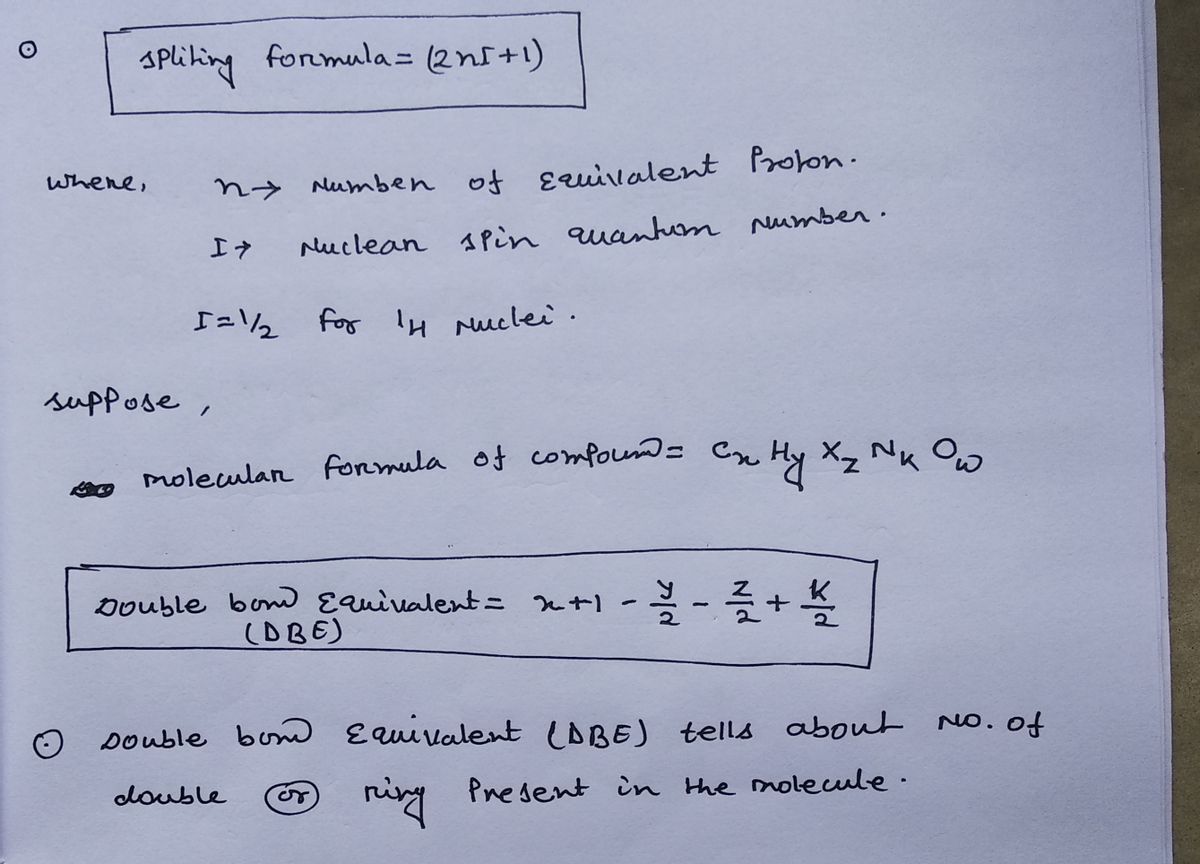 spliting formula = (2nI+1)
where,
n → Number of Equivalent Proton.
I → Nuclear spin quantum Number.
I = 1/2 for 1H Nuclei.
suppose,
molecular formula of compound = Cx Hy Xz NK Ow
Double bond Equivalent = x+1 - y/2 - z/2 + K/2
(DBE)
Double bond Equivalent (DBE) tells about No. of
double or ring Present in the molecule.